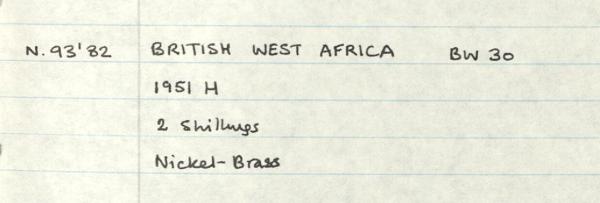 N. 93'82 BRITISH WEST AFRICA BW 30
1951 H
2 Shillings
Nickel-Brass